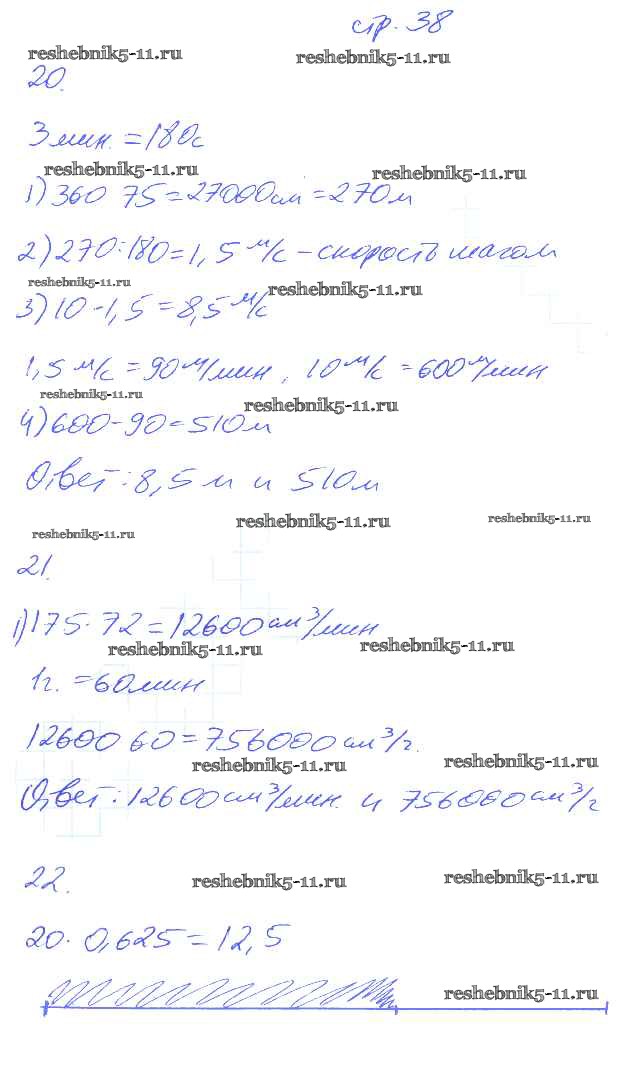 стр. 38
reshebnik5-11.ru
reshebnik5-11.ru
20.
3 мин. = 180с
reshebnik5-11.ru
reshebnik5-11.ru
1) 360 75 = 27000см = 270м
2) 270:180 = 1,5 м/с - скорость шагом
reshebnik5-11.ru
reshebnik5-11.ru
3) 10-1,5 = 8,5 м/с
1,5 м/с = 90 м/мин, 10 м/с = 600 м/мин
reshebnik5-11.ru
reshebnik5-11.ru
4) 600-90 = 510м
Ответ: 8,5 м и 510м
reshebnik5-11.ru
reshebnik5-11.ru
reshebnik5-11.ru
21.
1) 175·72 = 12600 см³/мин
reshebnik5-11.ru
reshebnik5-11.ru
1ч. = 60 мин
12600 60 = 756000 см³/ч.
reshebnik5-11.ru
reshebnik5-11.ru
Ответ: 12600 см³/мин. и 756000 см³/ч
22.
reshebnik5-11.ru
reshebnik5-11.ru
20· 0,625 = 12,5
reshebnik5-11.ru